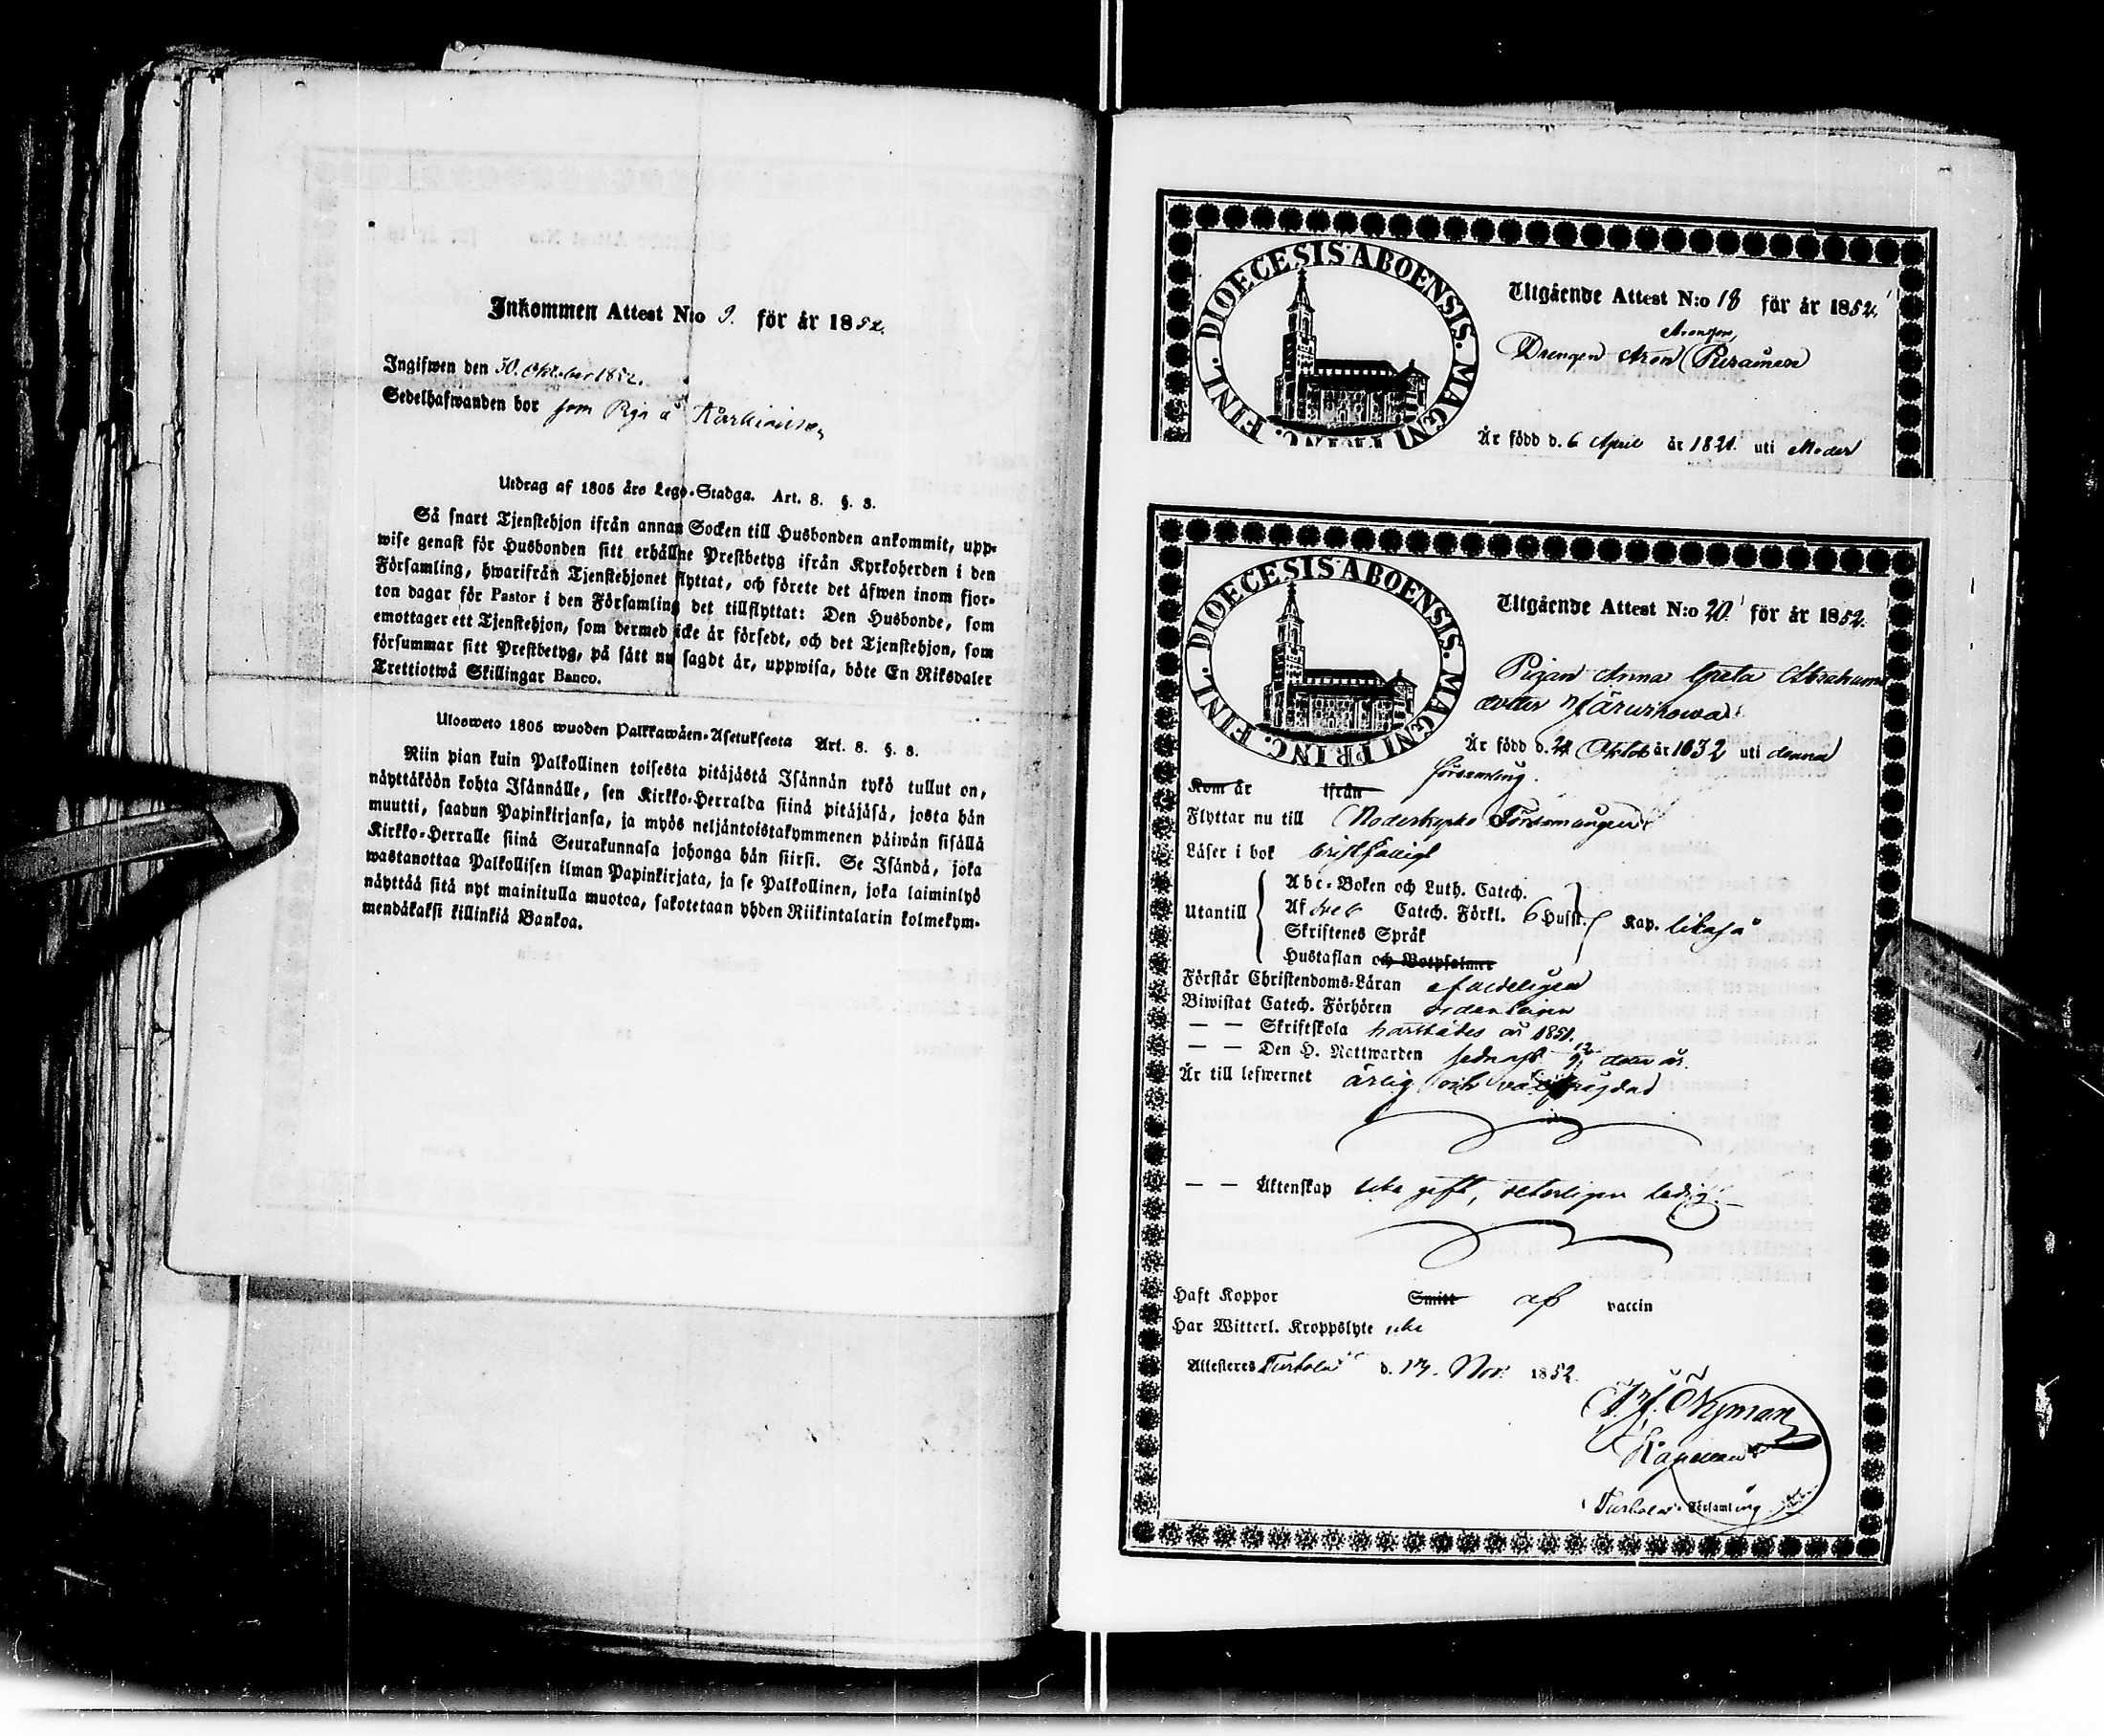 Inkommen Attest N:o 9. för år 1852.
Ingifwen den 30. Oktober 1852.
Sedelhafwanden bor som Piga å
Utdrag af 1805 års Lego-Stadga. Art. 8. §. 8.
Så snart Tjenstehjon ifrån annan Socken till Husbonden ankommit, upp-
wise genast för Husbonden sitt erhållne Prestbetyg ifrån Kyrkoherden i den
Församling, hwarifrån Tjenstehjonet flyttat, och förete det äfwen inom fjor-
ton dagar för Pastor i den Församling det tillflyttat: Den Husbonde, som
emottager ett Tjenstehjon, som dermed icke är försedt, och det Tjenstehjon, som
försummar sitt Prestbetyg, på sätt nu sagdt är, uppwisa, böte En Riksdaler
Trettiotwå Skillingar Banco.
Ulosweto 1805 wuoden Palkkawäen-Asetuksesta Art. 8. §. 8.
Niin pian kuin Palkollinen toisesta pitäjästä Isännän tykö tullut on,
näyttäköön kohta Isännälle, sen Kirkko-Herralda siinä pitäjäsä, josta hän
muutti, saadun Papinkirjansa, ja myös neljäntoistakymmenen päiwän sisällä
Kirkko-Herralle siinä Seurakunnasa johonga hän siirsi. Se Isändä, joka
wastanottaa Palkollisen ilman Papinkirjata, ja se Palkollinen, joka laiminlyö
näyttää sitä nyt mainitulla muotoa, sakotetaan yhden Riikintalarin kolmekym-
mendäkaksi killinkiä Bankoa.
DIOECESIS ABOENSIS. MAGNI PRINC. FINL.
Utgående Attest N:o 18 för år 1852.
Aronsson
Drengen Aron
Är född d. 6 April år 1821 uti Moder
DIOECESIS ABOENSIS. MAGNI PRINC. FINL.
Utgående Attest N:o 20. för år 1852.
Pigan Anna Greta Abrahams
dotter
Är född d. 24 Oktob år 1832 uti denna
församling.
Kom år ifrån
Flyttar nu till Moderkyrko Församlingen
Läser i bok
Abc-Boken och Luth. Catech.
Utantill Af Catech. Förkl. 6 Hufst. Kap. likaså
Skriftenes Språk
Hustaflan och Botpsalmer
Förstår Christendoms-Läran
Biwistat Catech. Förhören ordentligen
— — Skriftskola år 1851.
— — Den H. Nattwarden sednast 12/9 detta år.
Är till lefwernet ärlig och välfrägdad
— — Äktenskap icke gift, ledig.
Haft Koppor Smitt af vaccin
Har Witterl. Kroppslyte icke
Attesteres Turkola d. 13. Nov. 1852.
Nyman
Kapellan
Turkola Församling